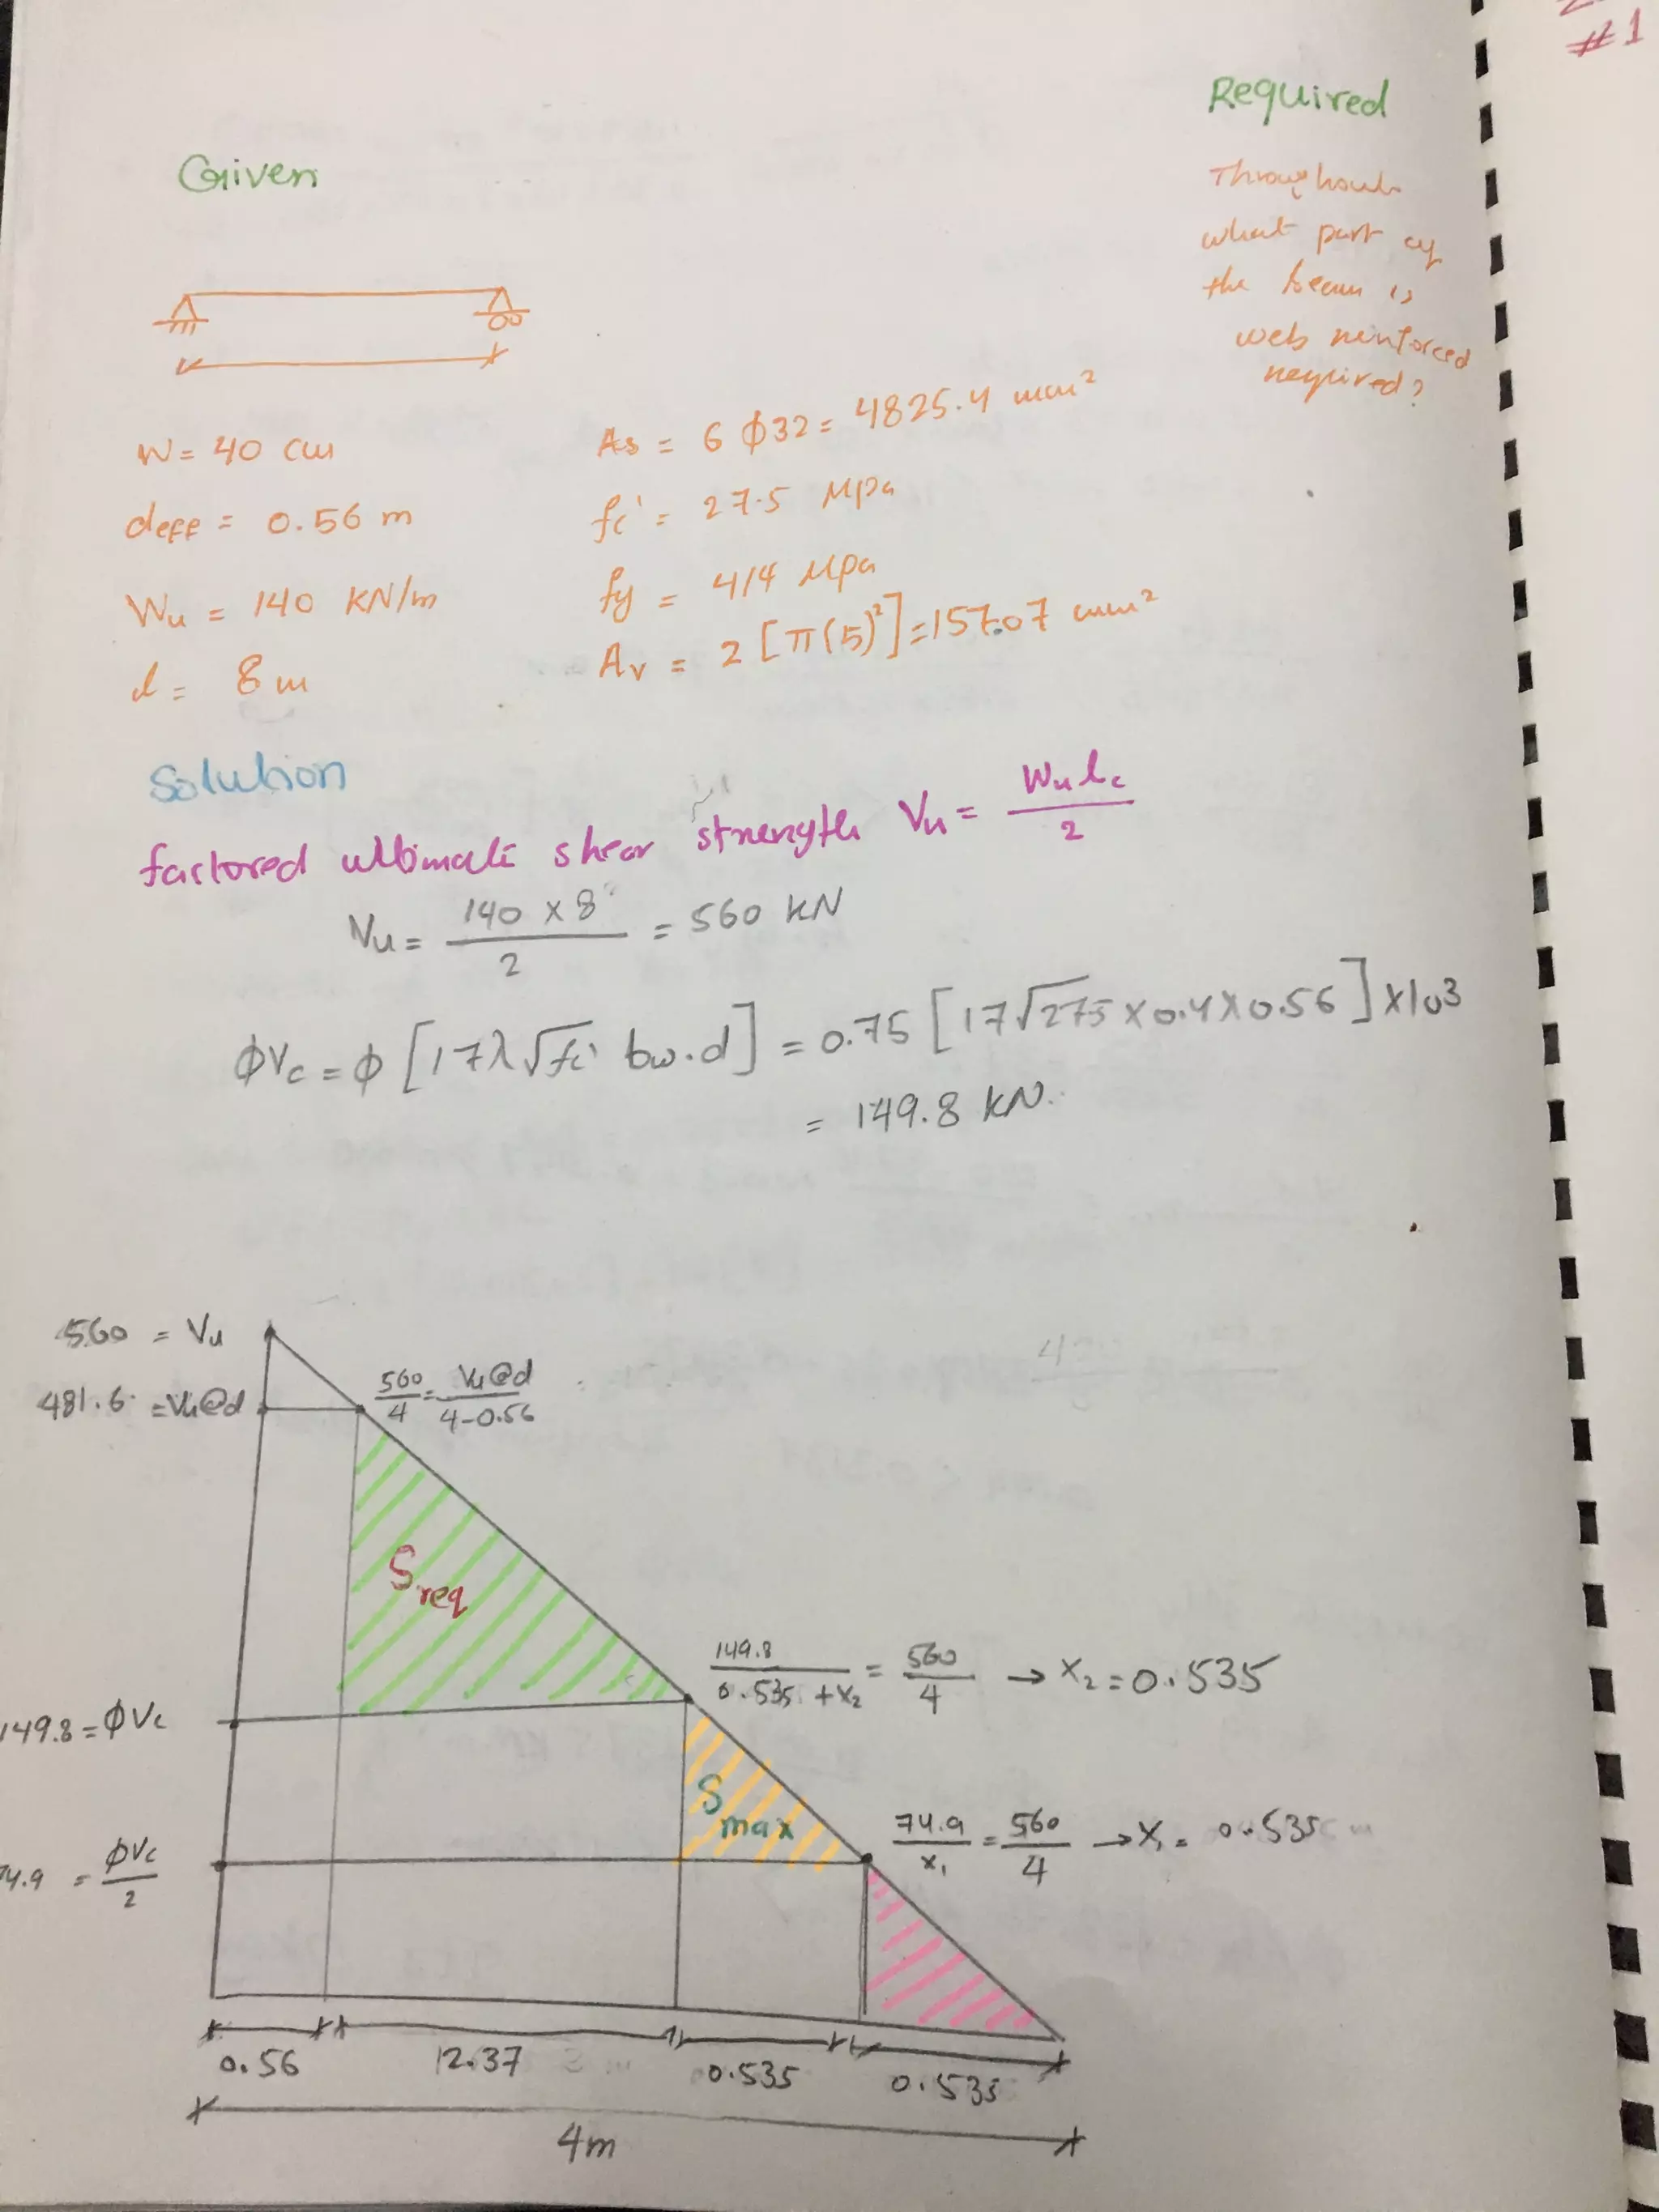 #1
Required
Given
Throughout
what part of
the beam is
web reinforced
required?
W = 40 cm
deff = 0.56 m
Wu = 140 KN/m
l = 8 m
As = 6 ϕ32 = 4825.4 mm²
fc' = 27.5 Mpa
fy = 414 Mpa
Av = 2 [π(5)²] = 157.07 mm²
Solution
factored ultimate shear strength Vu = Wu lc / 2
Vu = 140 x 8 / 2 = 560 KN
ϕVc = ϕ [17λ√fc' bw.d] = 0.75 [17√275 x 0.4 x 0.56] x 103
= 149.8 KN.
560 = Vu
481.6 = Vu@d
560/4 = Vu@d/4-0.56
Sreq
149.8/0.535+x2 = 560/4 → x2 = 0.535
149.8 = ϕVc
Smax
74.9/x1 = 560/4 → x1 = 0.535
74.9 = ϕVc/2
0.56 2.37 0.535 0.535
4m